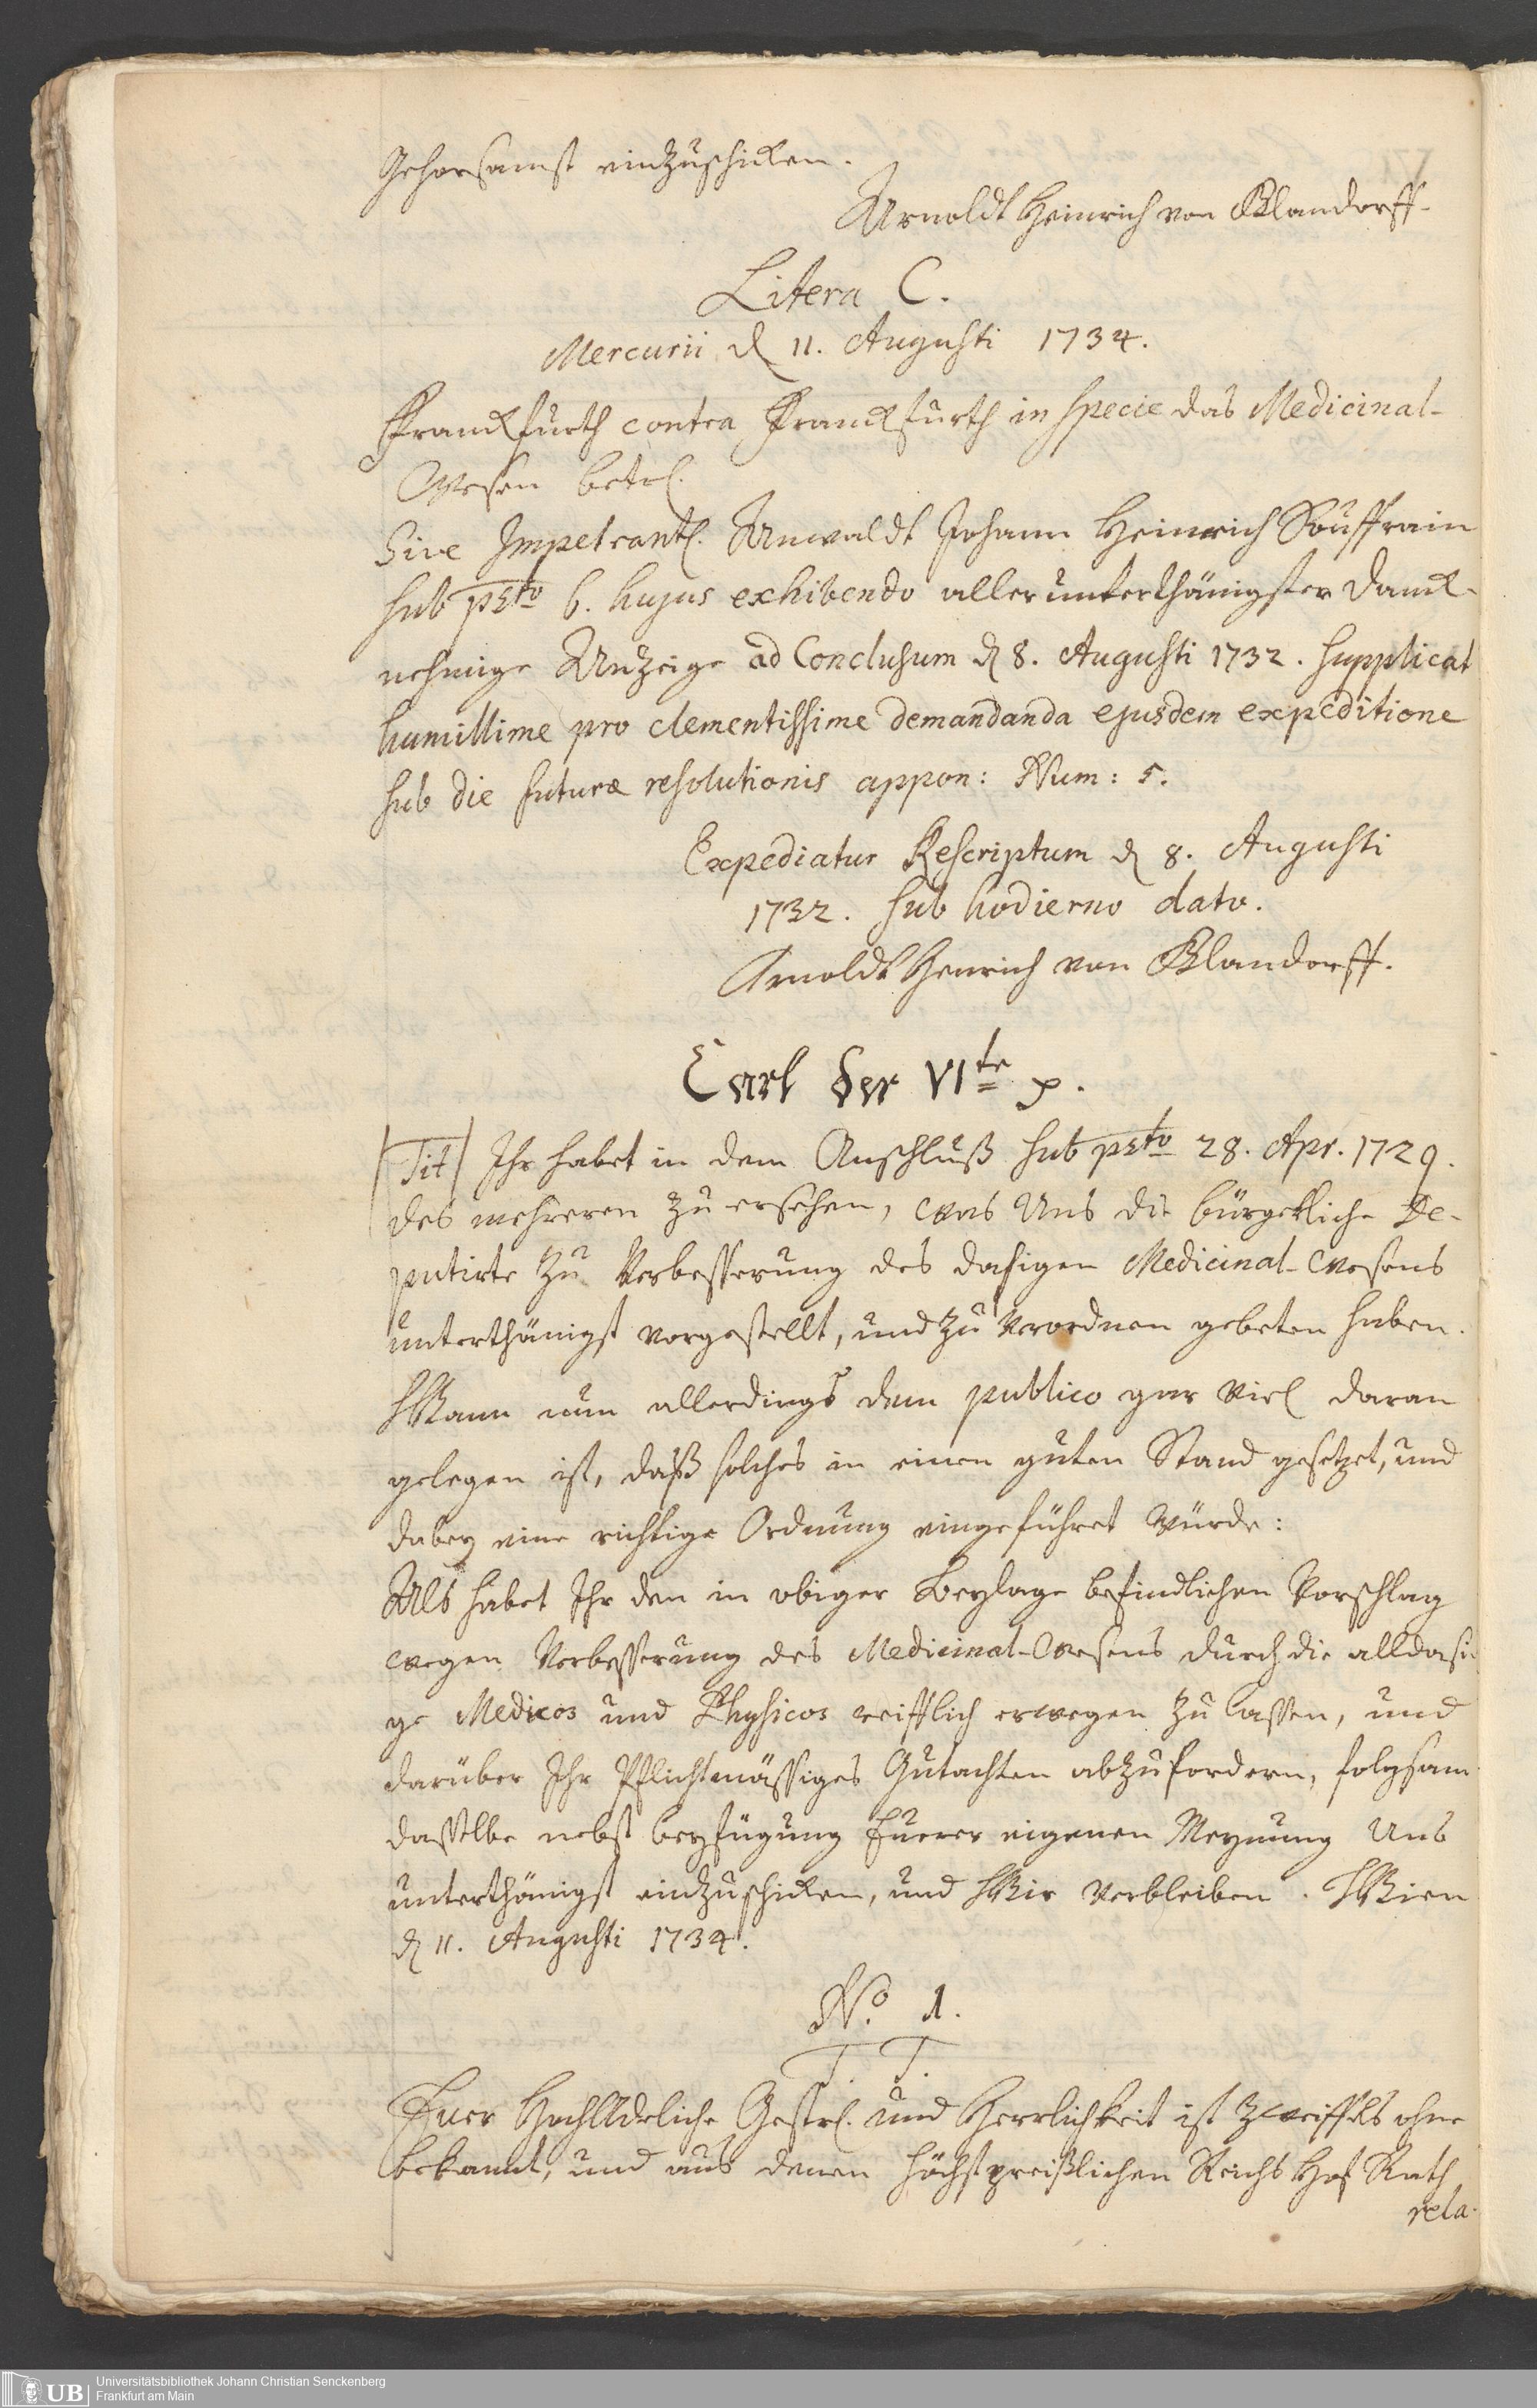 Gehorsamst einzuschicken.
Arnoldt Heinrich von Blandorff.
Litera C.
Mercurii d. 11. Augusti 1734.
Franckfurth contra Franckfurth in specie das Medicinal-
Wesen betr.
Sive Impetrant. Anwaldt Johann Heinrich Souffrain
sub psto 6. hujus exhibendo allerunterthänigster Danck-
nehmige Anzeige ad Conclusum d. 8. Augusti 1732. supplicat
humillime pro clementissime demandanda ejusdem expeditione
sub die futuræ resolutionis appon: Num: 5.
Expediatur Rescriptum d. 8. Augusti
1732. sub hodierno dato.
Arnoldt Henrich von Blandorff.
Carl der VIte p.
/Tit/ Ihr habet in dem Anschluß sub psto 28. Apr. 1729.
des mehreren zu ersehen, was Uns die bürgerliche De-
putirte zu Verbesserung des dasigen Medicinal-Wesens
unterthänigst vorgestellt, und zu Verordnen gebeten haben.
Wann nun allerdings dem publico gar viel daran
gelegen ist, daß solches in einen guten Stand gesetzet, und
dabey eine richtige Ordnung eingeführet würde:
Als habet Ihr den in obiger Beylage befindlichen Vorschlag
wegen Verbesserung des Medicinal-Wesens durch die alldasi-
ge Medicos und Physicos reifflich erwegen zu lassen, und
darüber Ihr Pflichtmässiges Gutachten abzufordern, folgsam
dasselbe nebst beyfügung Euerer eigenen Meynung Uns
unterthänigst einzuschicken, und Wir verbleiben. Wien
d. 11. Augusti 1734.
No. 1.
T. T.
Euer HochAdeliche Gestr. und Herrlichkeit ist zweiffels ohne
bekannt, und aus denen höchstpreißlichen Reichs Hof Rath
rela-
UB
Universitätsbibliothek Johann Christian Senckenberg
Frankfurt am Main